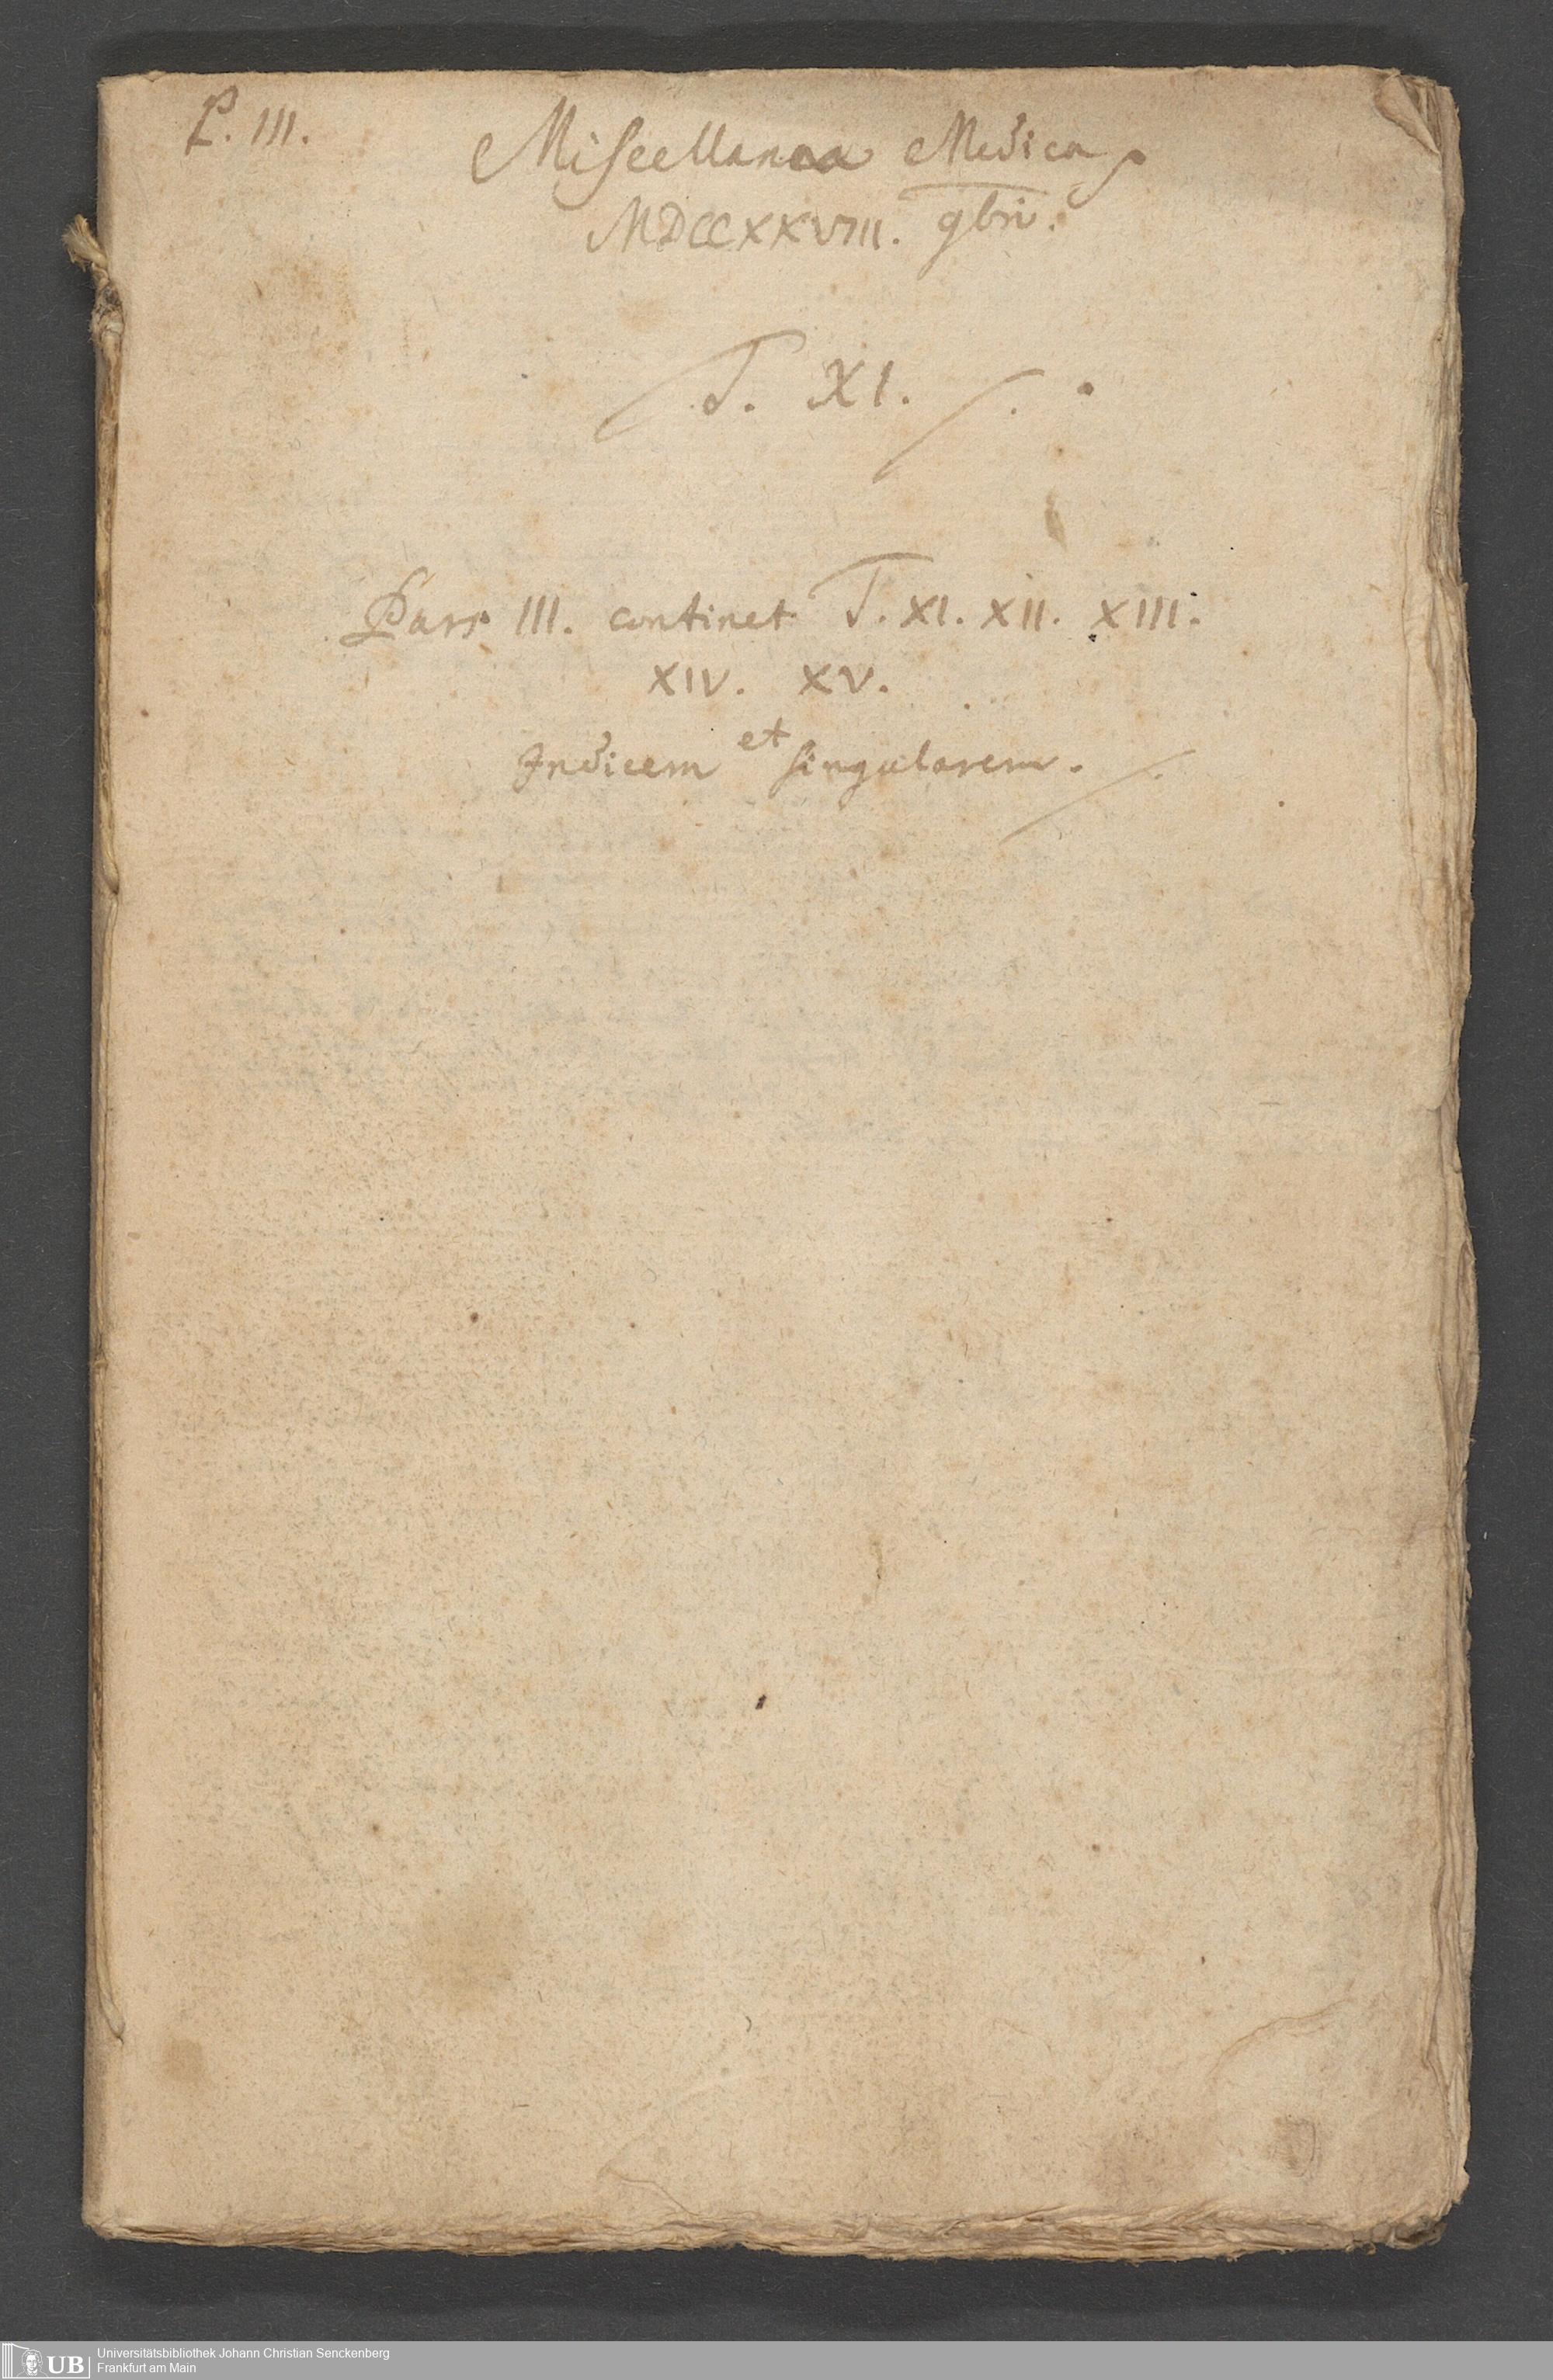 P. III.
Miscellanea Medica.
MDCCXXVIII. 9bri.
T. XI.
Pars III. continet T. XI. XII. XIII.
XIV. XV.
et
Indicem singularem.
UB
Universitätsbibliothek Johann Christian Senckenberg
Frankfurt am Main